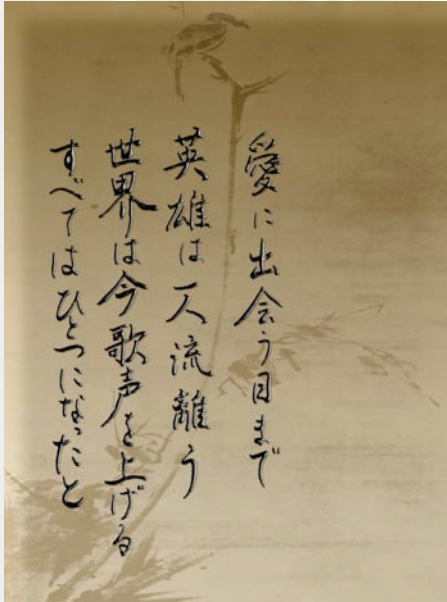 愛に出会う日まで
英雄は一人流離う
世界は今歌声を上げる
すべてはひとつになったと